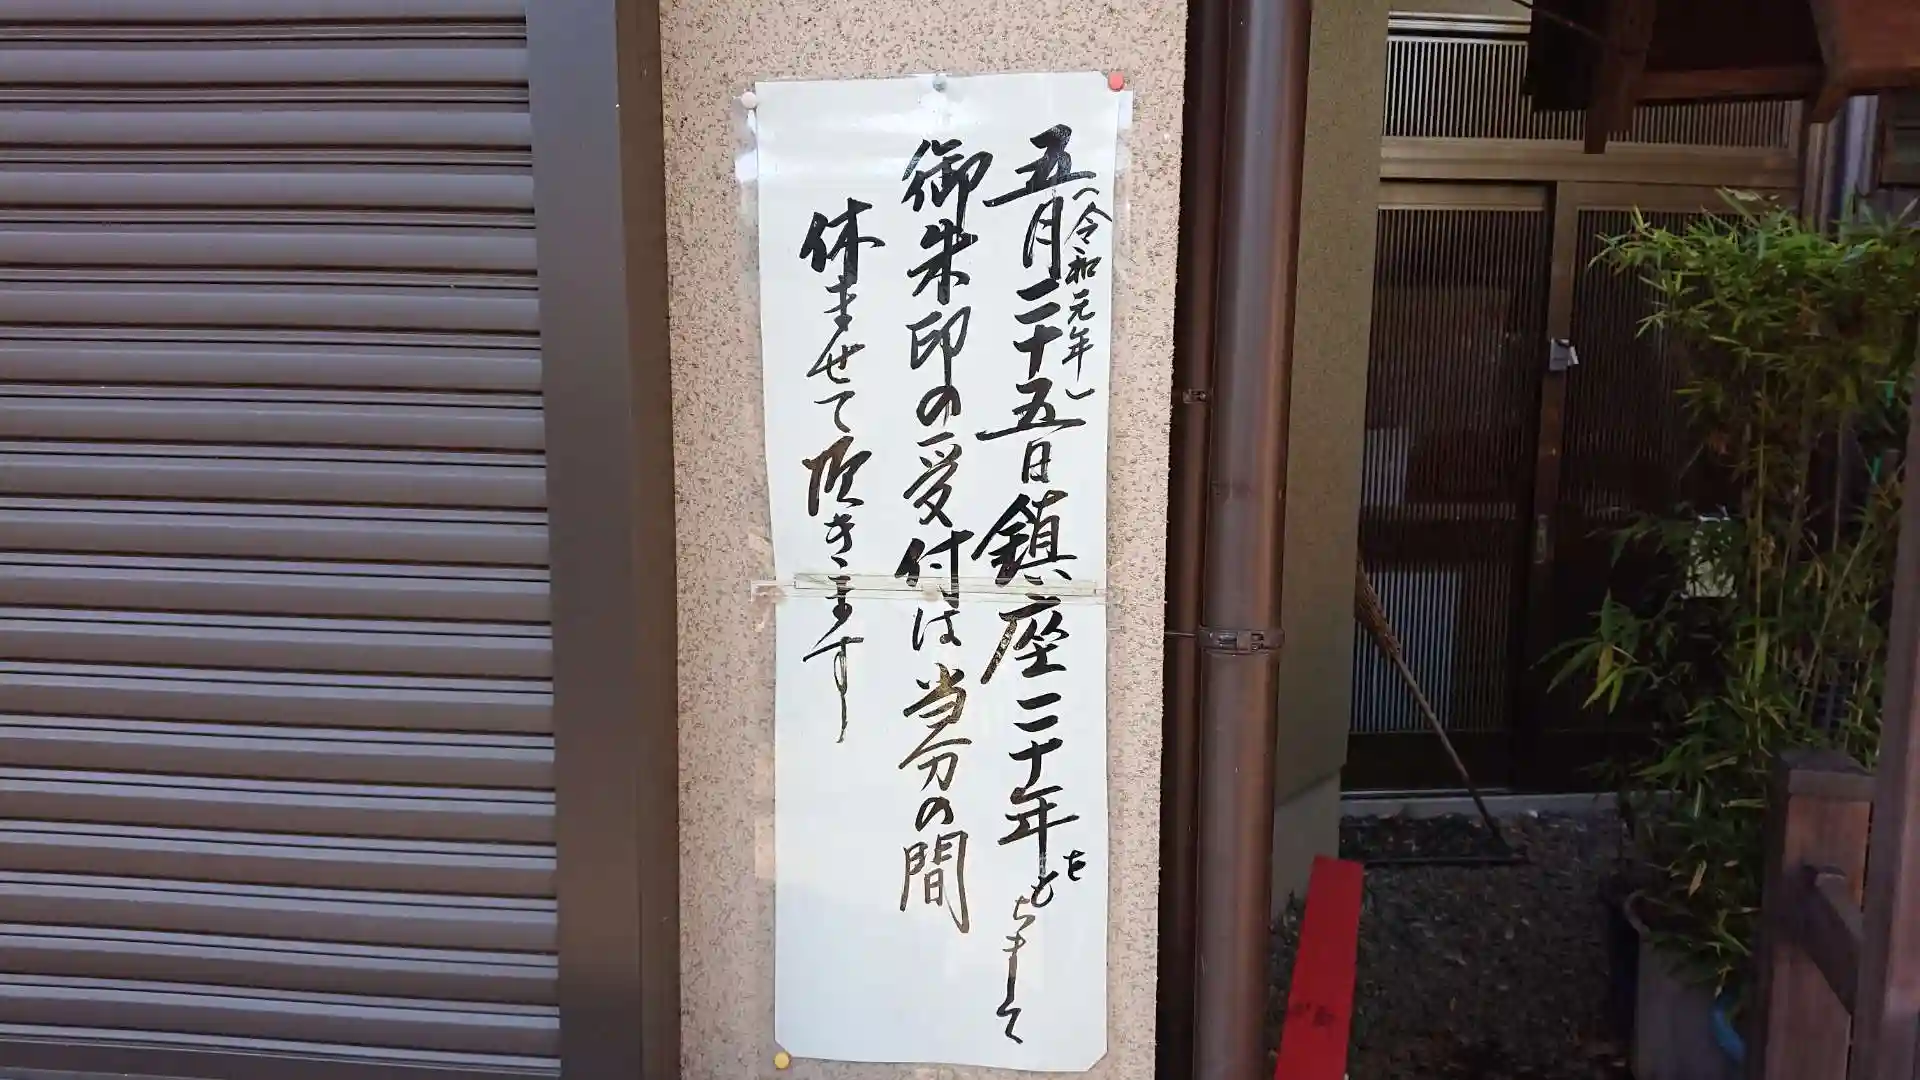 五月二十五日鎮座二十年をもちまして
(令和元年)
御朱印の受付は当分の間
休ませて頂きます